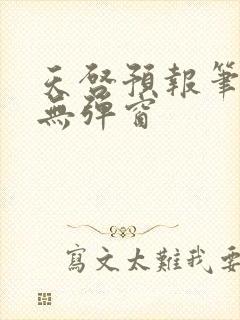 天啓預報筆
無彈窗
寫文太難我要